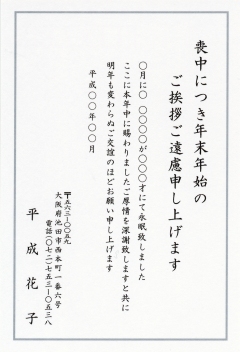 喪中につき年末年始の
ご挨拶ご遠慮申し上げます
〇月に〇 〇〇〇〇が〇〇〇才にて永眠致しました
ここに本年中に賜わりましたご厚情を深謝致しますと共に
明年も変わらぬご交誼のほどお願い申し上げます
平成〇〇年〇〇月
〒五六三-〇〇五九
大阪府池田市西本町一番六号
電話〇七二-七五三-〇五三八
平成花子